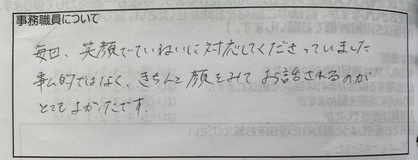 事務職員について
毎日、笑顔でていねいに対応してくださっていました
事ム的ではなく、きちんと顔をみてお話されるのが
とてもよかったです。